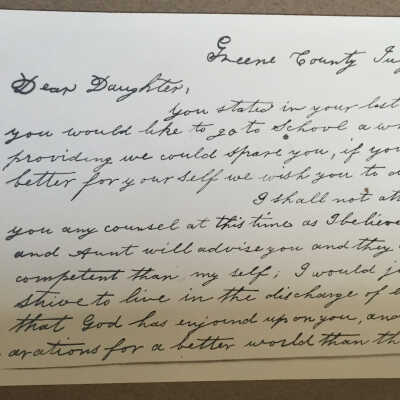 Greene County
Dear Daughter,
you stated in your last
you would like to go to School a
providing we could spare you, if you
better for your self we wish you to
I shall not
you any counsel at this time as I believe
and Aunt will advise you and they
competent than my self; I would
strive to live in the discharge of
that God has enjoind upon you, and
arations for a better world than